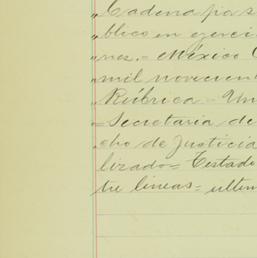 „Cadena pa s
„blico en ejerci
„nes.= México
„mil novecien
„Rúbrica = Un
= Secretaria de
cho de Justicia
lizado = Testado
tre lineas = ultim